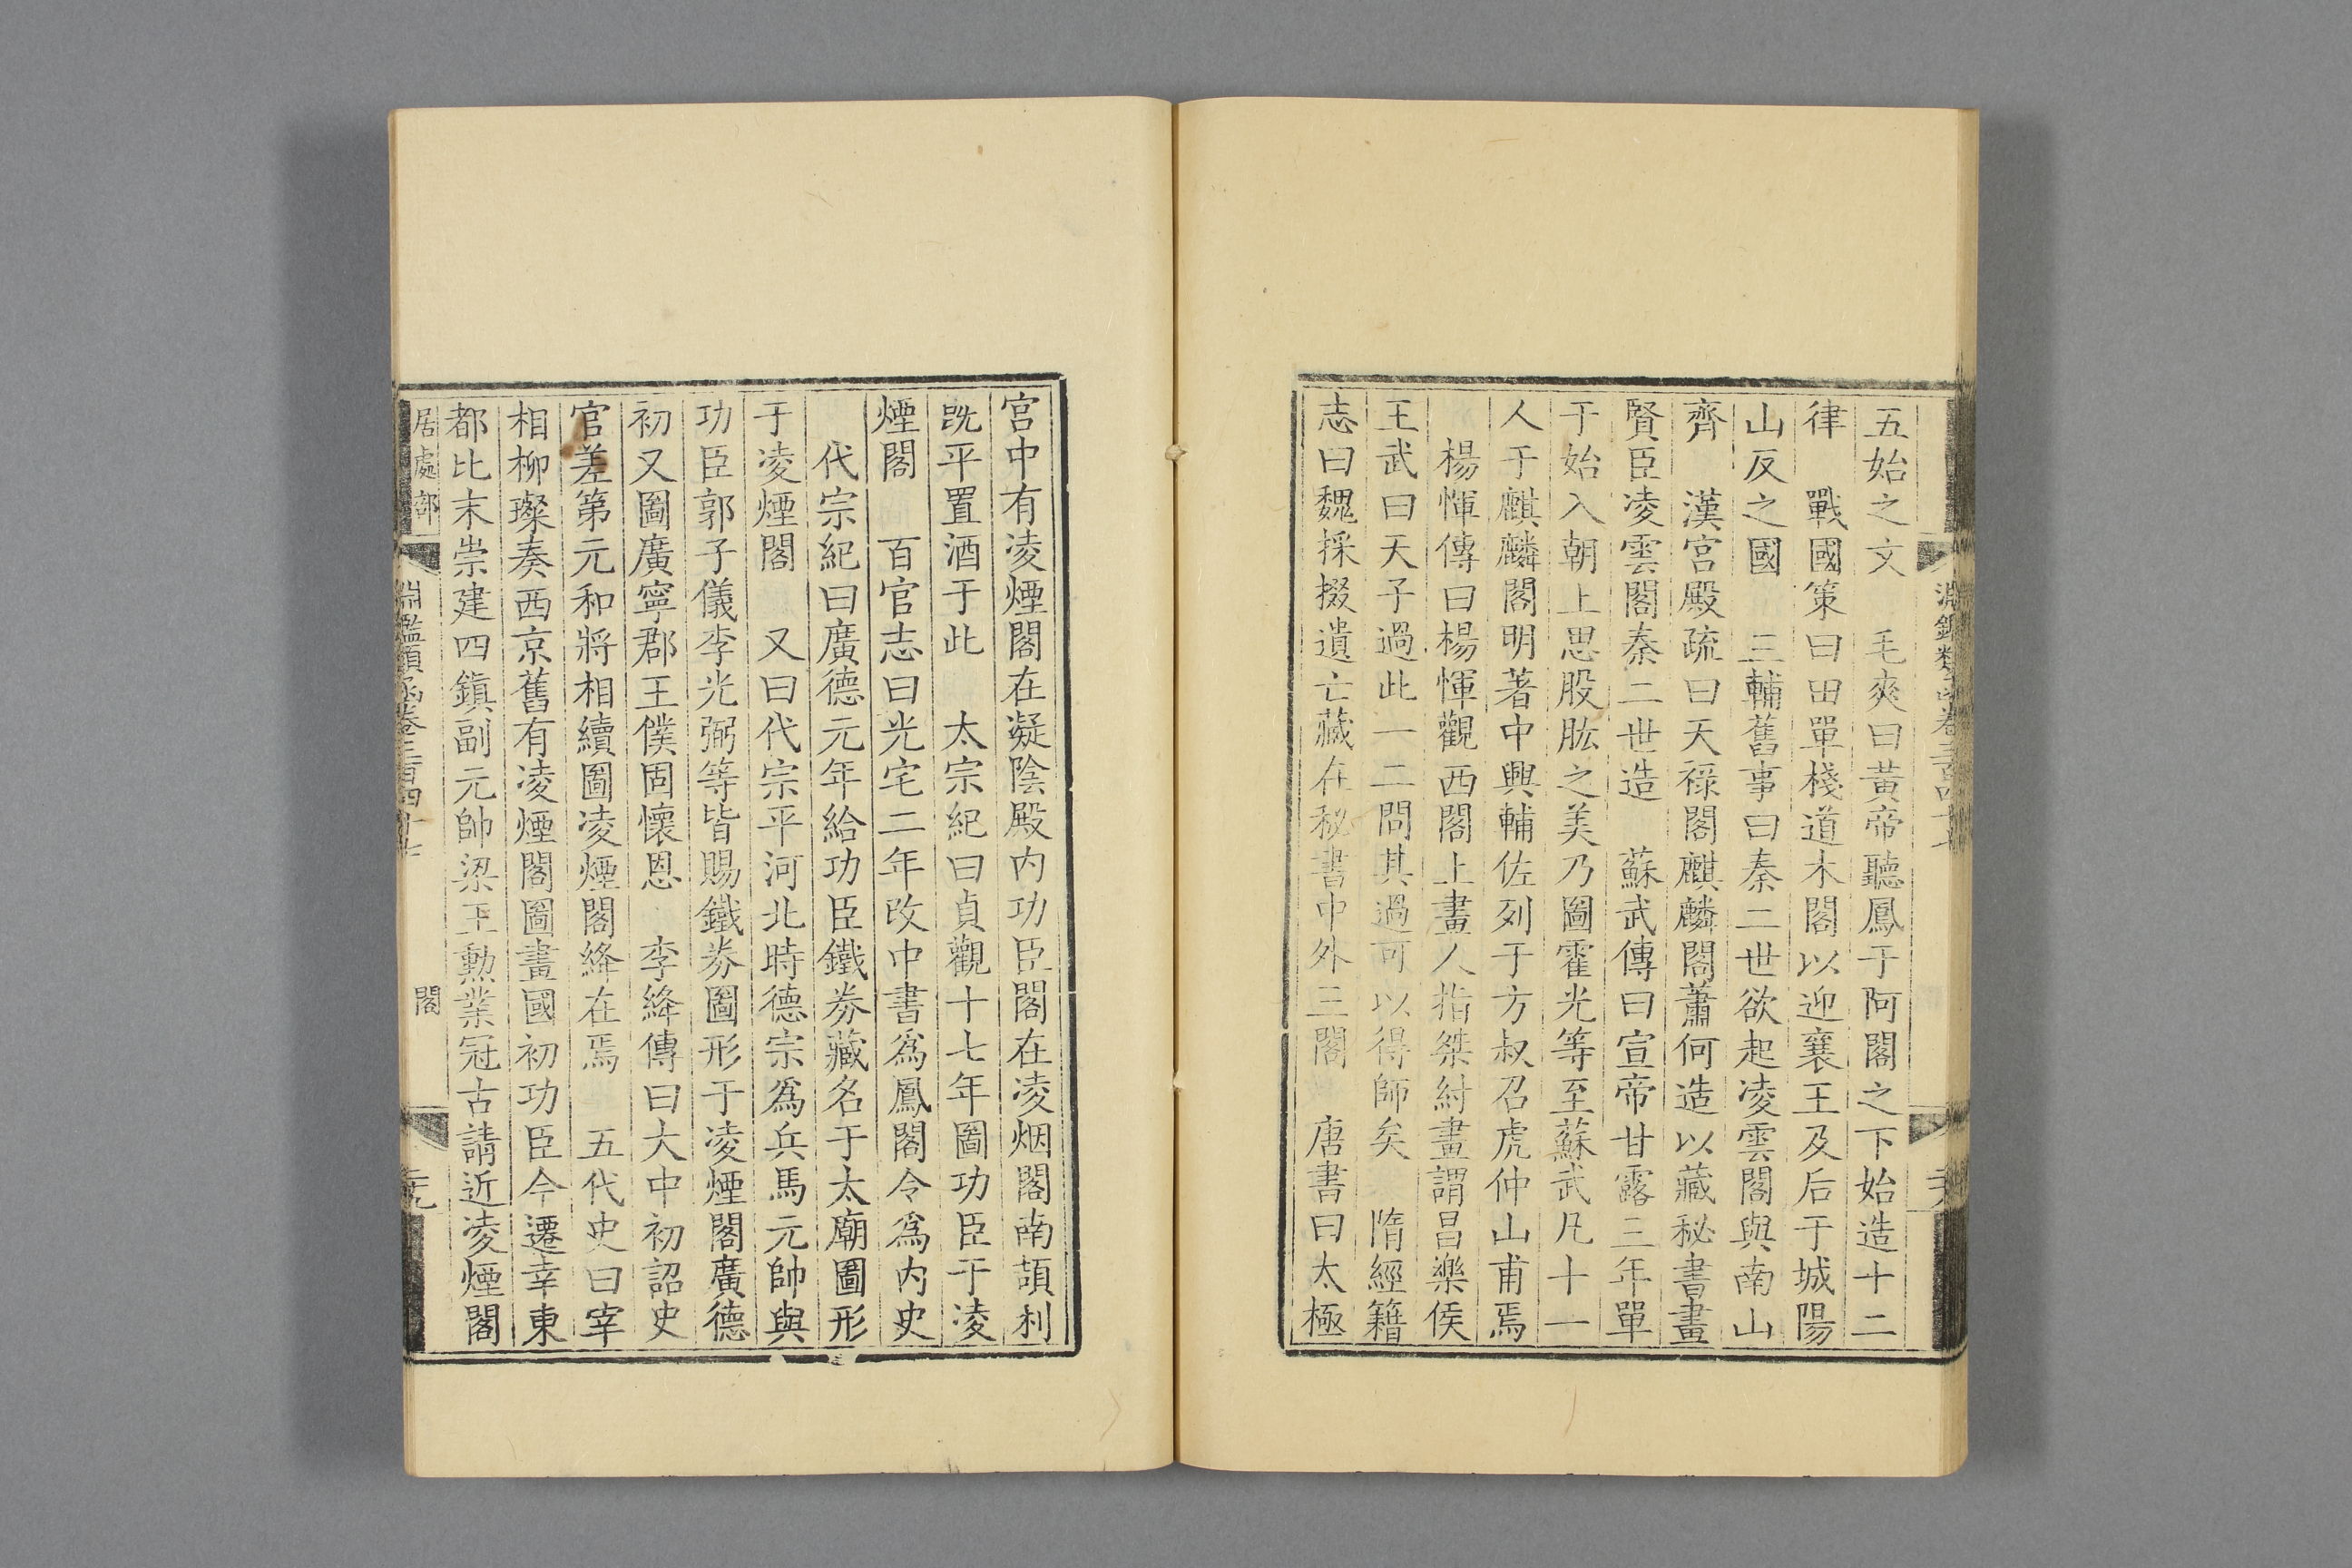 淵鑑類函卷三百四十七
五始之文　毛爽曰黃帝聽鳳于阿閣之下始造十二
律　戰國策曰田單棧道木閣以迎襄王及后于城陽
山反之國　三輔舊事曰秦二世欲起凌雲閣與南山
齊　漢宮殿疏曰天祿閣麒麟閣蕭何造以藏秘書畫
賢臣凌雲閣秦二世造　蘇武傳曰宣帝甘露三年單
于始入朝上思股肱之美乃圖霍光等至蘇武凡十一
人于麒麟閣明著中興輔佐列于方叔召虎仲山甫焉
楊惲傳曰楊惲觀西閣上畫人指桀紂畫謂昌樂侯
王武曰天子過此一二問其過可以得師矣　隋經籍
志曰魏採掇遺亡藏在秘書中外三閣　唐書曰太極
宮中有凌煙閣在凝陰殿内功臣閣在凌烟閣南頡利
既平置酒于此　太宗紀曰貞觀十七年圖功臣于凌
煙閣　百官志曰光宅二年改中書爲鳳閣令爲内史
代宗紀曰廣德元年給功臣鐵劵藏名于太廟圖形
于凌煙閣　又曰代宗平河北時德宗爲兵馬元帥與
功臣郭子儀李光弼等皆賜鐵劵圖形于凌煙閣廣德
初又圖廣寧郡王僕固懷恩　李絳傳曰大中初詔史
官差第元和將相續圖凌煙閣絳在焉　五代史曰宰
相柳璨奏西京舊有凌煙閣圖畫國初功臣今遷幸東
都比末崇建四鎮副元帥梁王勲業冠古請近凌煙閣
居處部　淵鑑類函卷三百四十七　閣　二十九